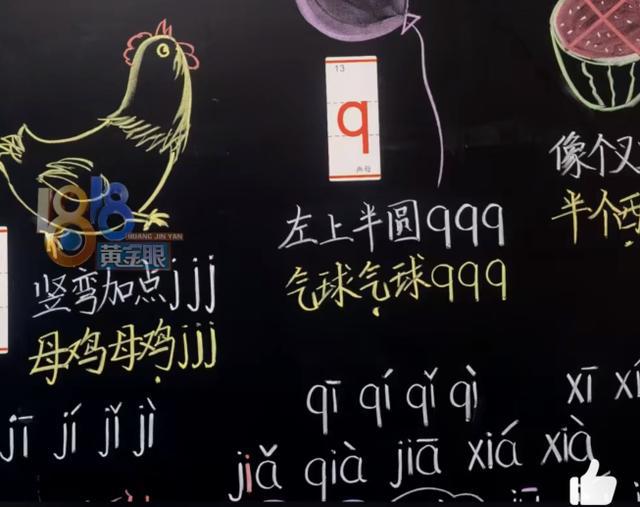 1818
HUANG JIN YAN
黄金眼
竖弯加点jjj
母鸡母鸡jjj
jī jí jǐ jì
13
q
声母
左上半圆qqq
气球气球qqq
qī qí qǐ qì
像个
半个
xī
jiǎ qià jiā xiá xià